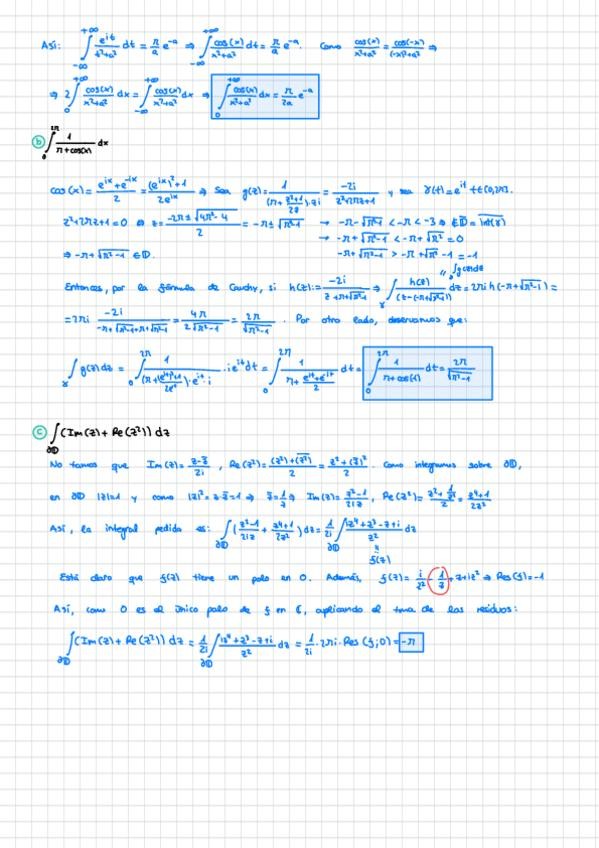 Así: ∫_{-∞}^{+∞} e^{it}/(t²+a²) dt = π/a e^{-a} ⇒ ∫_{-∞}^{+∞} cos(x)/(x²+a²) dt = π/a e^{-a}. Como cos(x)/(x²+a²) = cos(-x)/((-x)²+a²) ⇒
⇒ 2∫_0^{+∞} cos(x)/(x²+a²) dx = ∫_{-∞}^{+∞} cos(x)/(x²+a²) dx ⇒ ∫_0^{+∞} cos(x)/(x²+a²) dx = π/2a e^{-a}
b) ∫_0^{2π} 1/(π+cos(x)) dx
cos(x) = (e^{ix}+e^{-ix})/2 = ((e^{ix})²+1)/(2e^{ix}) ⇒ Sea g(z) = 1/((π+(z²+1)/2z)·zi) = -2i/(z²+2πz+1) y sea γ(t)=e^{it} t∈[0,2π].
z²+2πz+1=0 ⇔ z = (-2π±√(4π²-4))/2 = -π±√(π²-1) → -π-√(π²-1) < -π < -3 ⇒ ∉ 𝔻̄ = int(γ)
→ -π+√(π²-1) < -π+√π² = 0
⇒ -π+√(π²-1) ∈ 𝔻. -π+√(π²-1) > -π+√π²-1 = -1
Entonces, por la fórmula de Cauchy, si h(z):= -2i/(z+π+√(π²-1)) ⇒ ∫_γ h(z)/(z-(-π+√(π²-1))) dz = 2πi h(-π+√(π²-1)) =
∫_γ g(z)dz
= 2πi -2i/(-π+√(π²-1)+π+√(π²-1)) = 4π/(2√(π²-1)) = 2π/√(π²-1). Por otro lado, observamos que:
∫_γ g(z)dz = ∫_0^{2π} 1/((π+((e^{it})²+1)/(2e^{it}))·e^{it}·i) · ie^{it}dt = ∫_0^{2π} 1/(π+(e^{it}+e^{it})/2) dt = ∫_0^{2π} 1/(π+cos(t)) dt = 2π/√(π²-1)
c) ∫_{∂𝔻} (Im(z)+Re(z²)) dz
No tamos que Im(z) = (z-z̄)/2i, Re(z²) = ((z²)+(z̄²))/2 = (z²+(z̄)²)/2. Como integramos sobre ∂𝔻,
en ∂𝔻 |z|=1 y como |z|²=z·z̄=1 ⇒ z̄=1/z ⇒ Im(z) = (z²-1)/2iz, Re(z²) = (z²+1/z²)/2 = (z⁴+1)/2z²
Así, la integral pedida es: ∫_{∂𝔻} ((z²-1)/2iz + (z⁴+1)/2z²) dz = 1/2i ∫_{∂𝔻} (iz⁴+z³-z+i)/z² dz
f(z)
Está claro que f(z) tiene un polo en 0. Además, f(z) = i/z² - 1/z + z + iz² ⇒ Res(f) = -1
Así, como 0 es el único polo de f en ℂ, aplicando el tma de los residuos:
∫_{∂𝔻} (Im(z)+Re(z²)) dz = 1/2i ∫_{∂𝔻} (iz⁴+z³-z+i)/z² dz = 1/2i · 2πi · Res(f;0) = -π